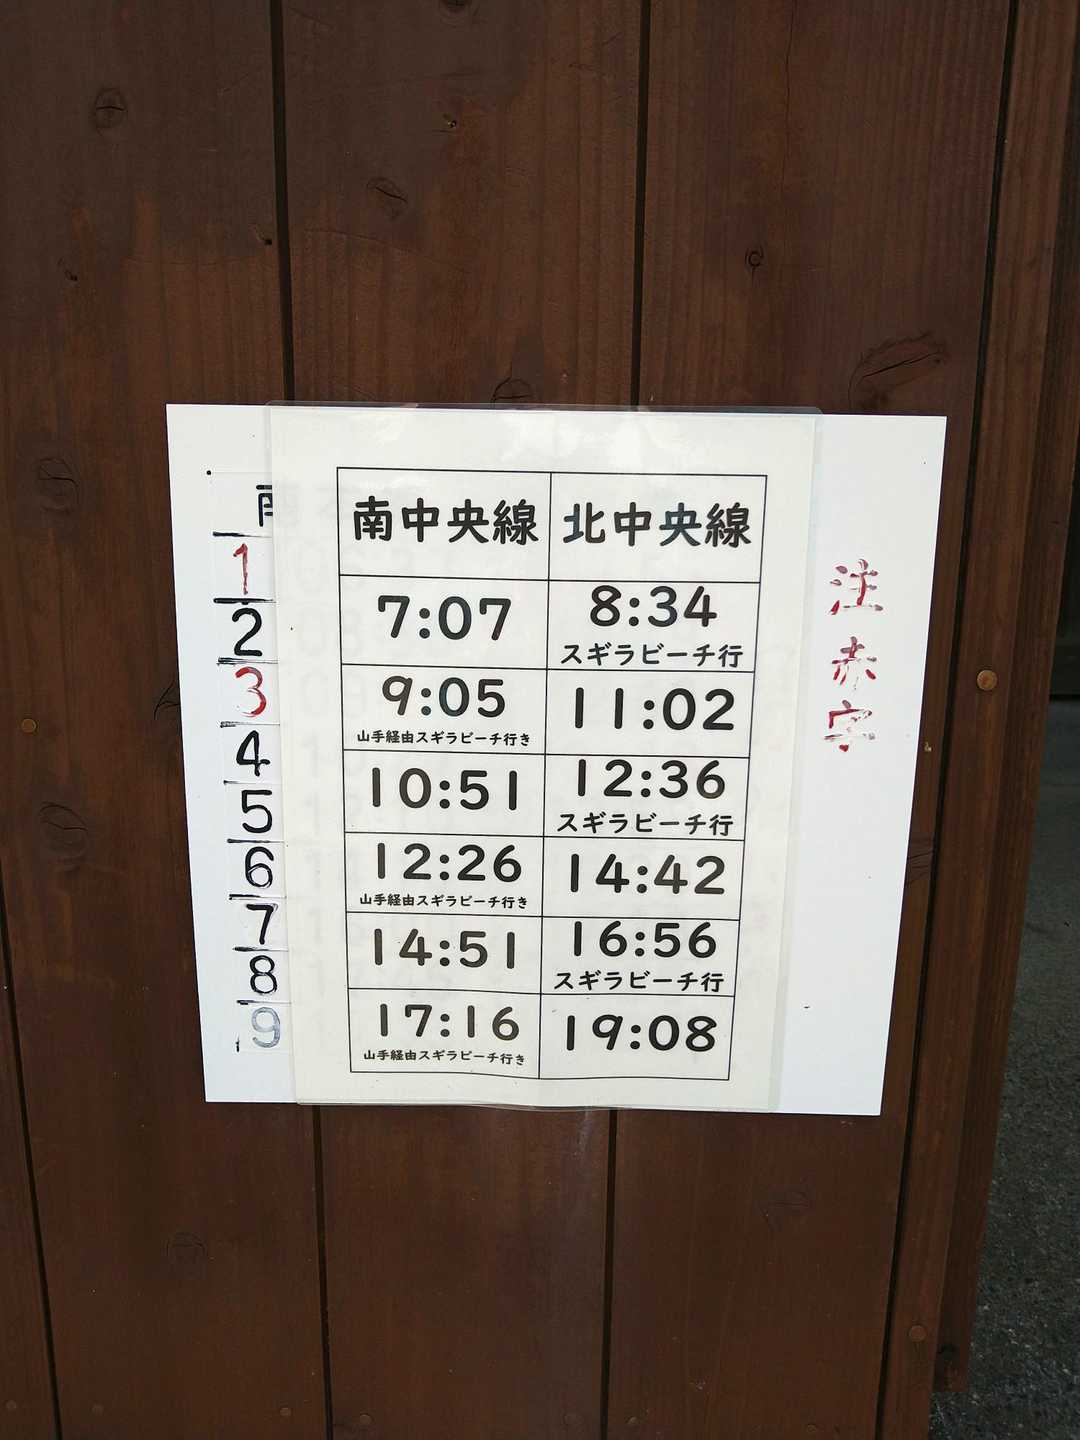 南中央線 北中央線
7:07 8:34
スギラビーチ行
9:05 11:02
山手経由スギラビーチ行き
10:51 12:36
スギラビーチ行
12:26 14:42
山手経由スギラビーチ行き
14:51 16:56
スギラビーチ行
17:16 19:08
山手経由スギラビーチ行き
1
2
3
4
5
6
7
8
9
注
赤
字